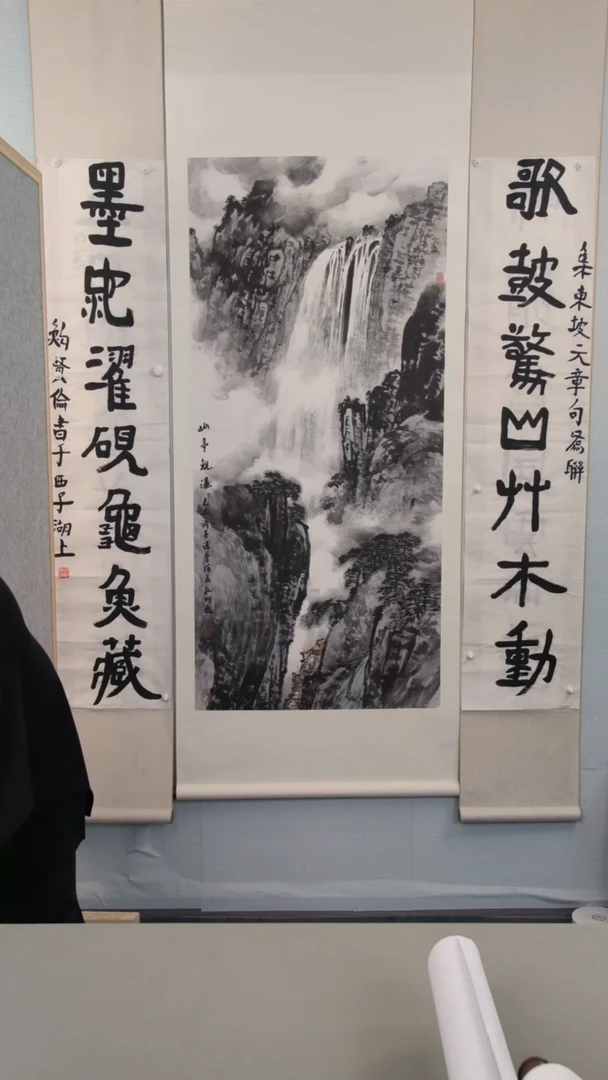 集東坡文章句為聯
歌鼓驚山艸木動
山亭觀瀑
墨池濯硯龜魚藏
倫書于西子湖上